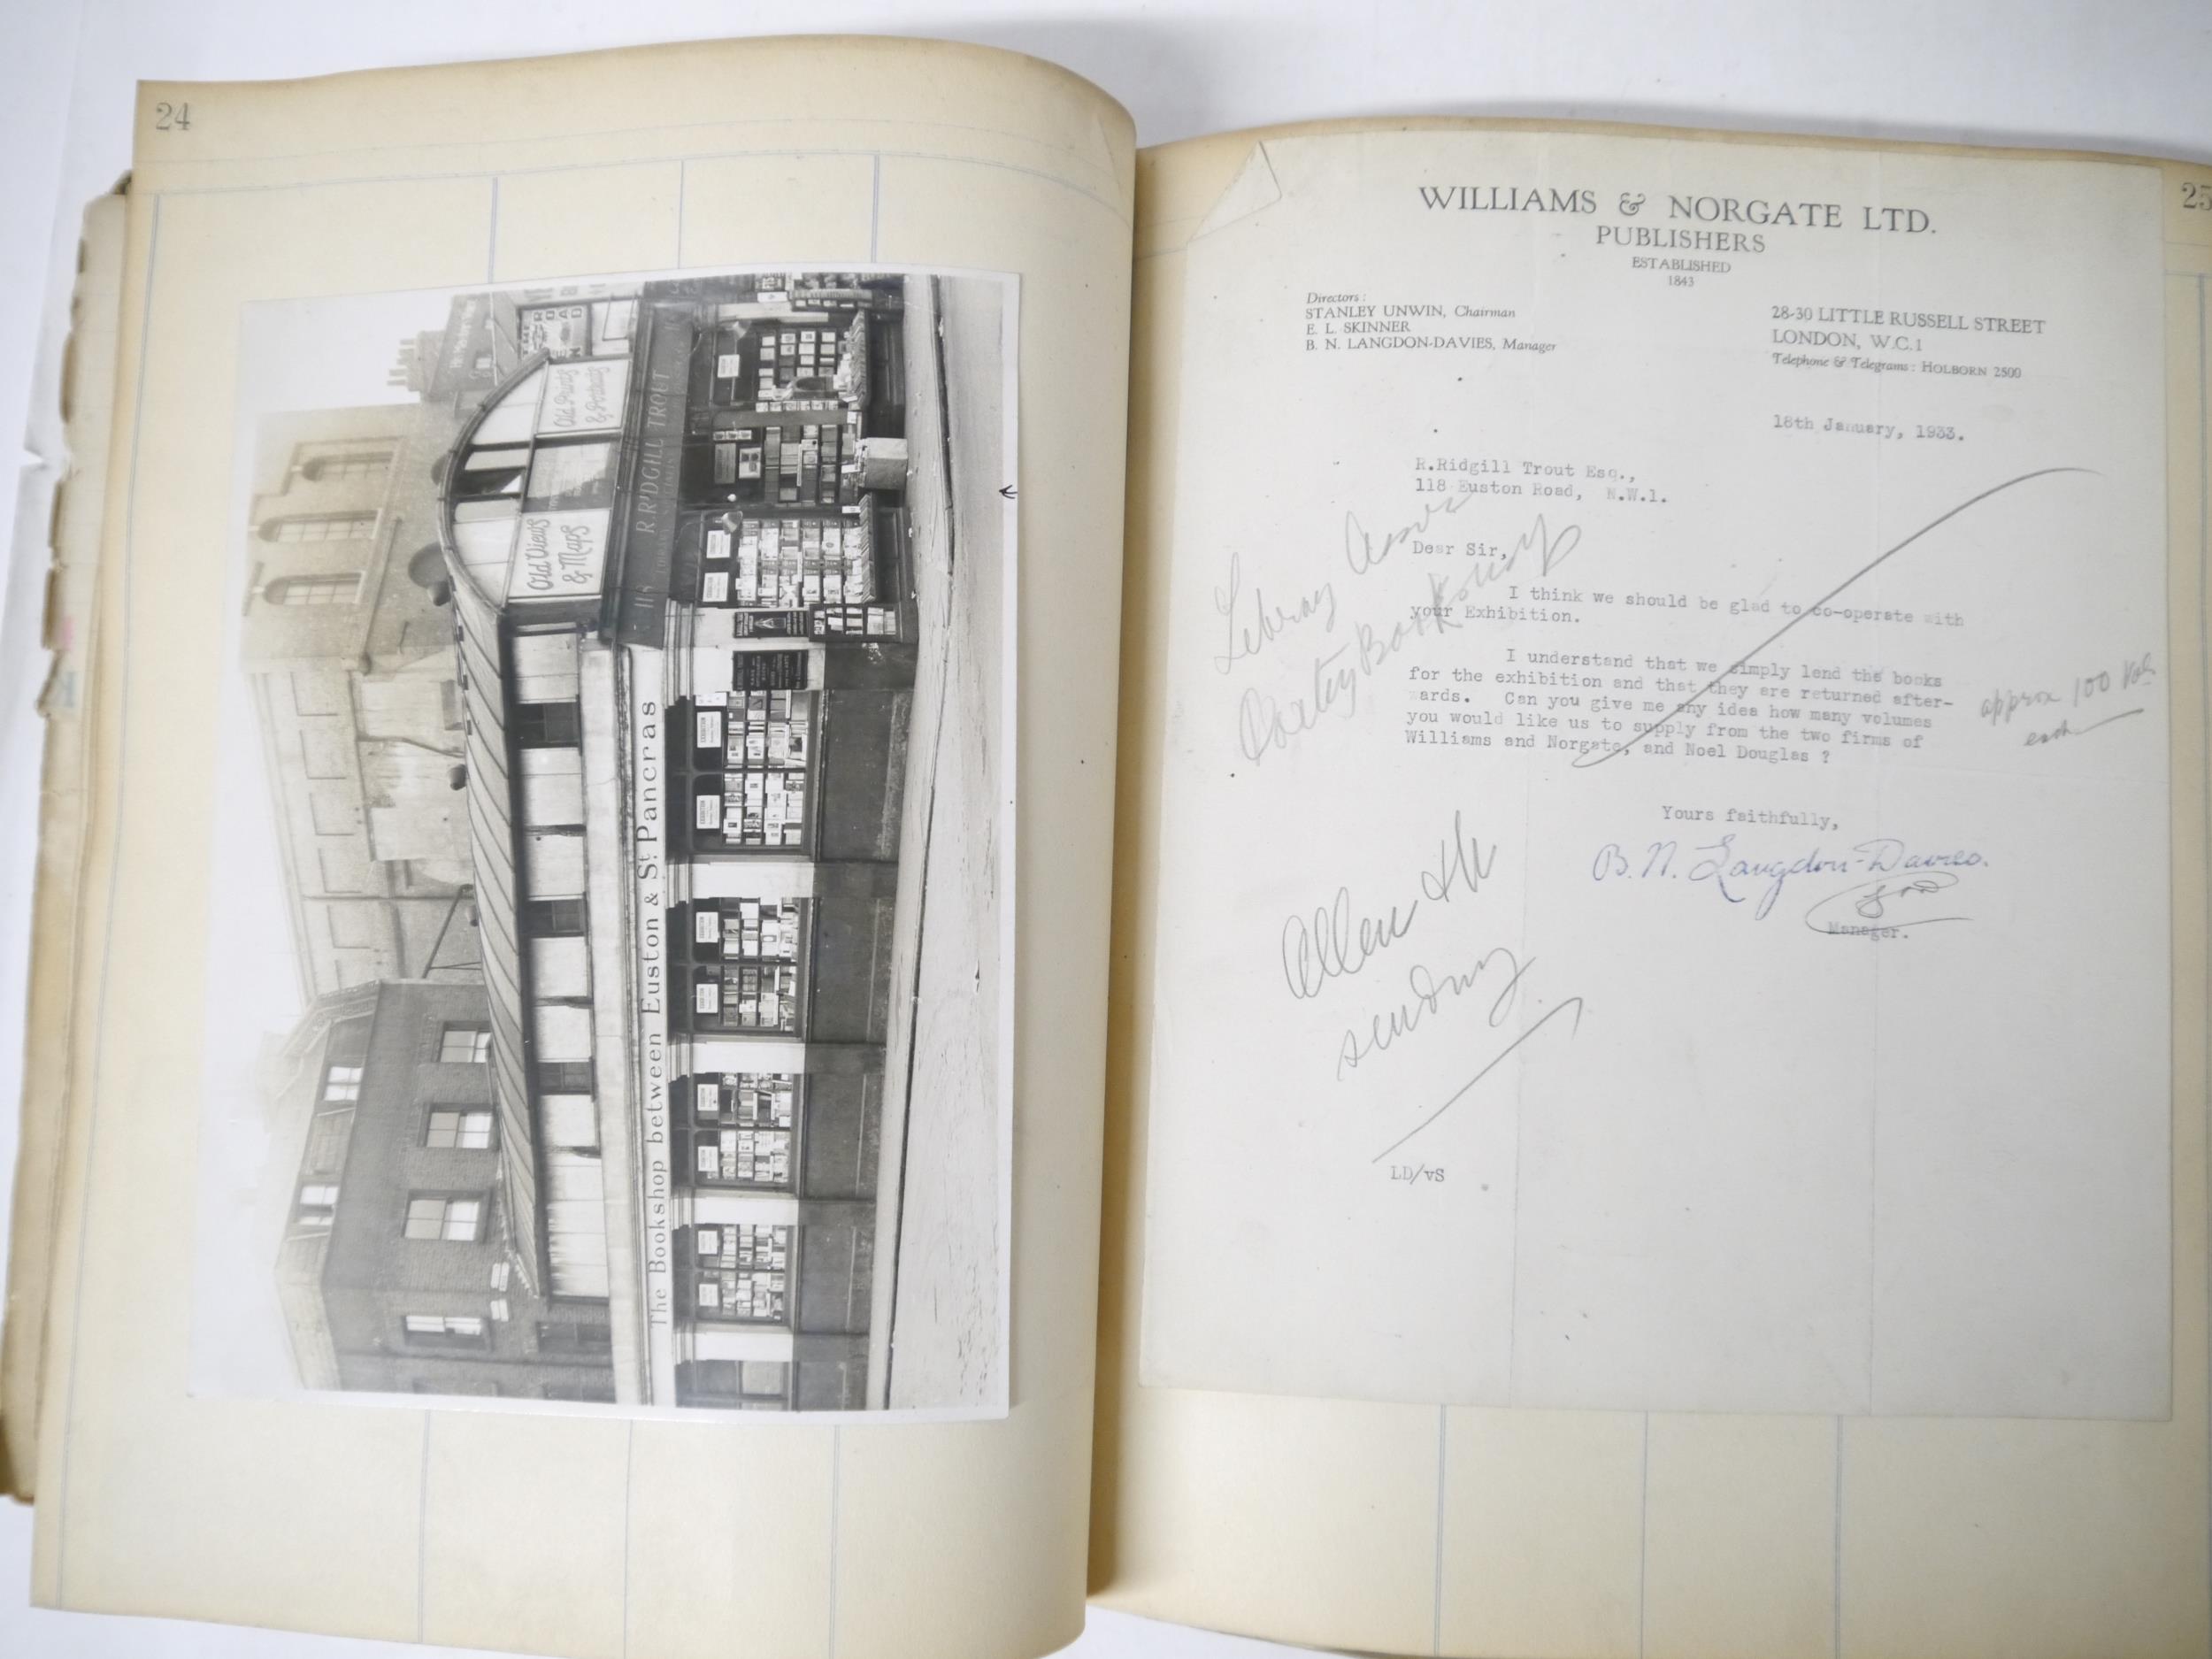 24
Old Prints
Old Views
& Maps
R. RIDGILL TROUT
118
The Bookshop between Euston & St. Pancras
25
WILLIAMS & NORGATE LTD.
PUBLISHERS
ESTABLISHED
1843
Directors:
STANLEY UNWIN, Chairman
E. L. SKINNER
B. N. LANGDON-DAVIES, Manager
28-30 LITTLE RUSSELL STREET
LONDON, W.C.1
Telephone & Telegrams: HOLBORN 2500
18th January, 1933.
R.Ridgill Trout Esq.,
118 Euston Road, N.W.1.
Dear Sir,
I think we should be glad to co-operate with
your Exhibition.
I understand that we simply lend the books
for the exhibition and that they are returned after-
wards. Can you give me any idea how many volumes
you would like us to supply from the two firms of
Williams and Norgate, and Noel Douglas ?
approx 100 Vols
each
Yours faithfully,
B. N. Langdon-Davies.
Manager.
Poetry Bookshop
Allen
sending
LD/vS